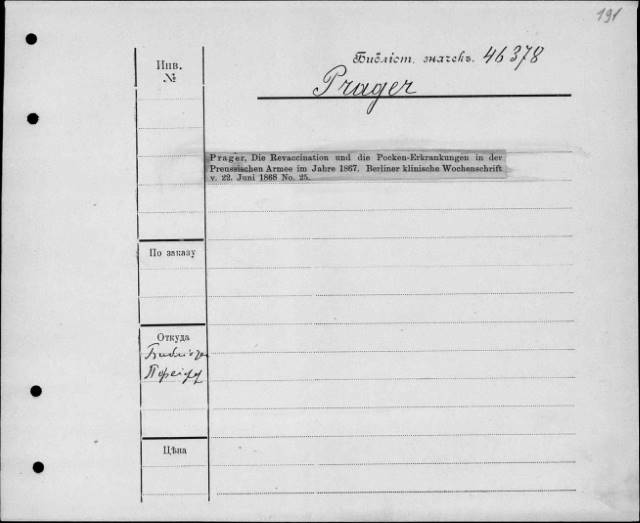 191
Библіот. значекъ. 46378
Инв.
№
Prager
Prager, Die Revaccination und die Pocken-Erkrankungen in der
Preussischen Armee im Jahre 1867. Berliner klinische Wochenschrift
v. 22. Juni 1868 No. 25.
По заказу
Откуда
Цѣна